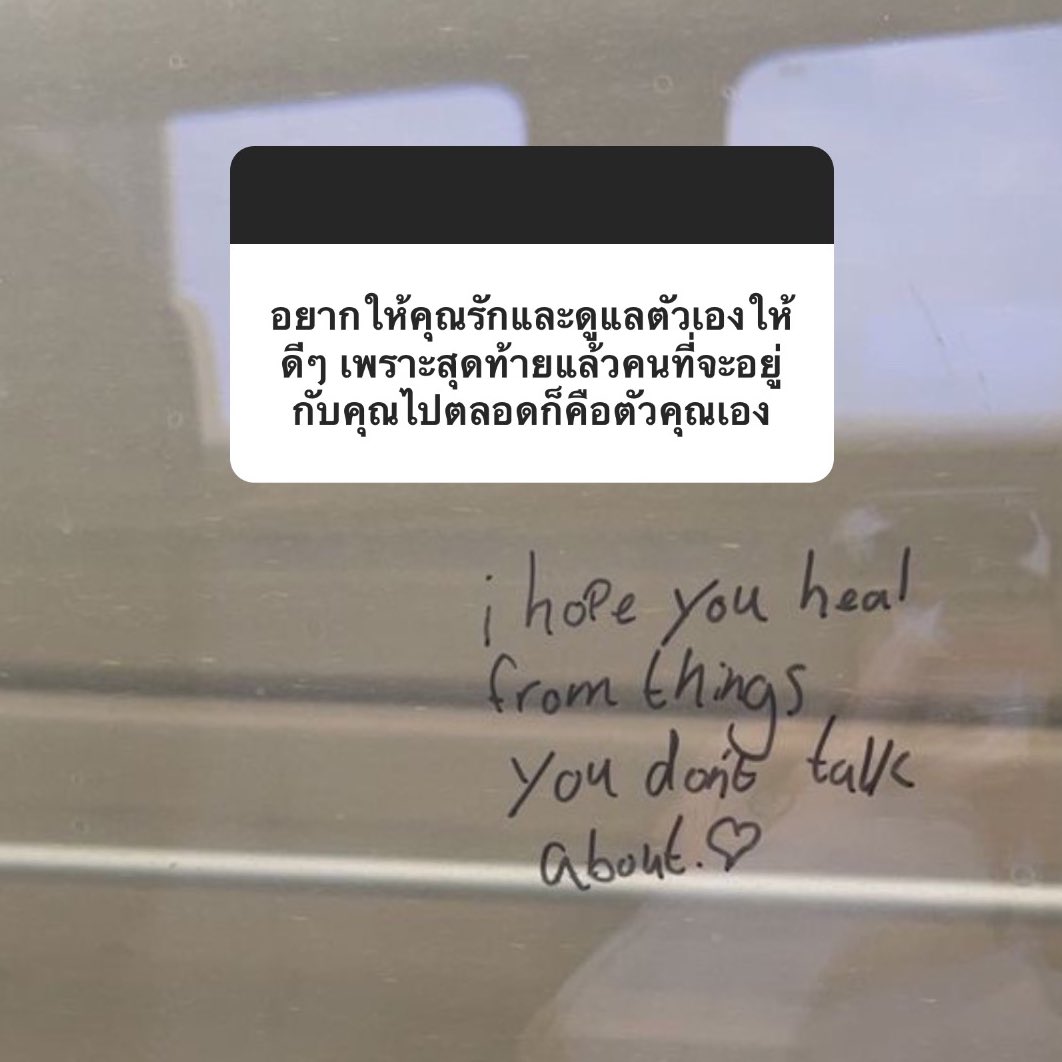 อยากให้คุณรักและดูแลตัวเองให้
ดีๆ เพราะสุดท้ายแล้วคนที่จะอยู่
กับคุณไปตลอดก็คือตัวคุณเอง
i hope you heal
from things
you don't talk
about.♡